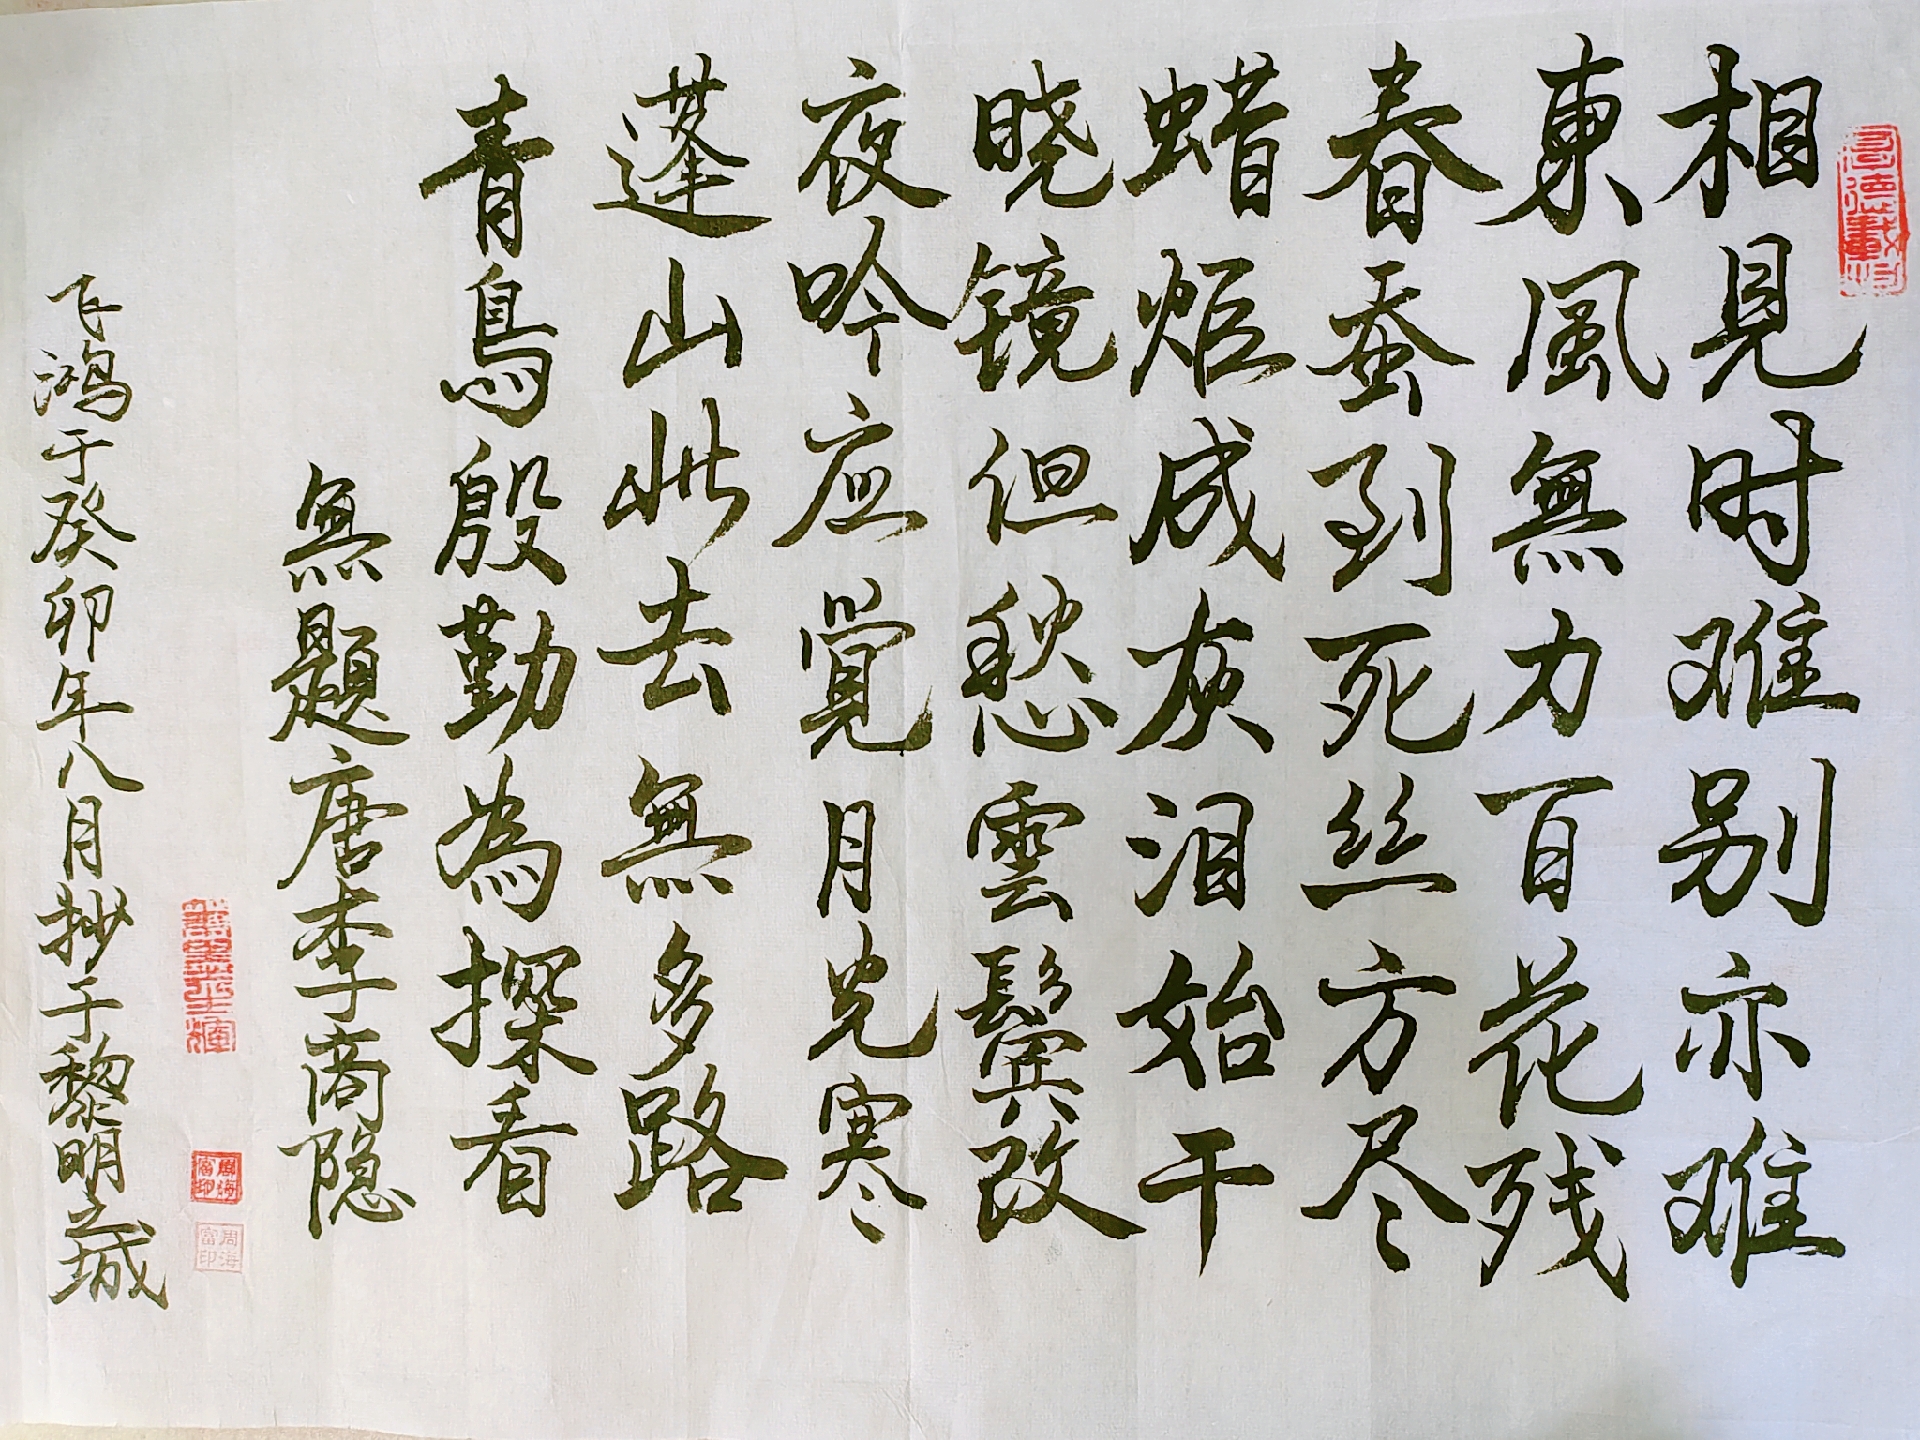 相見时难别亦难
東風無力百花残
春蚕到死丝方尽
蜡炬成灰泪始干
晓镜但愁雲鬓改
夜吟应覺月光寒
蓬山此去無多路
青鳥殷勤為探看
無题唐李商隐
飞鸿于癸卯年八月抄于黎明之城
周海富印
周海富印